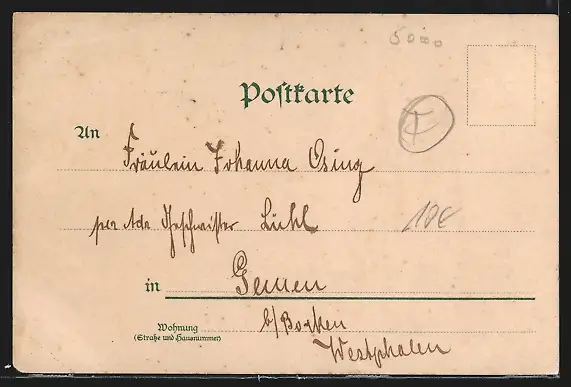 5000
Postkarte
An Fräulein Johanna Osing
per Adr. Geschwister Lühl
10€
in Gemen
Wohnung b/Borken
(Straße und Hausnummer)
Westphalen